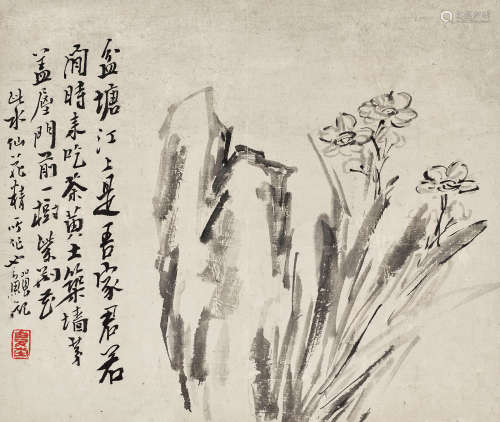 盆塘江上是吾家君若
閒時来吃茶黄土築墙茅
盖屋門前一樹紫荆花
此水仙花精所作